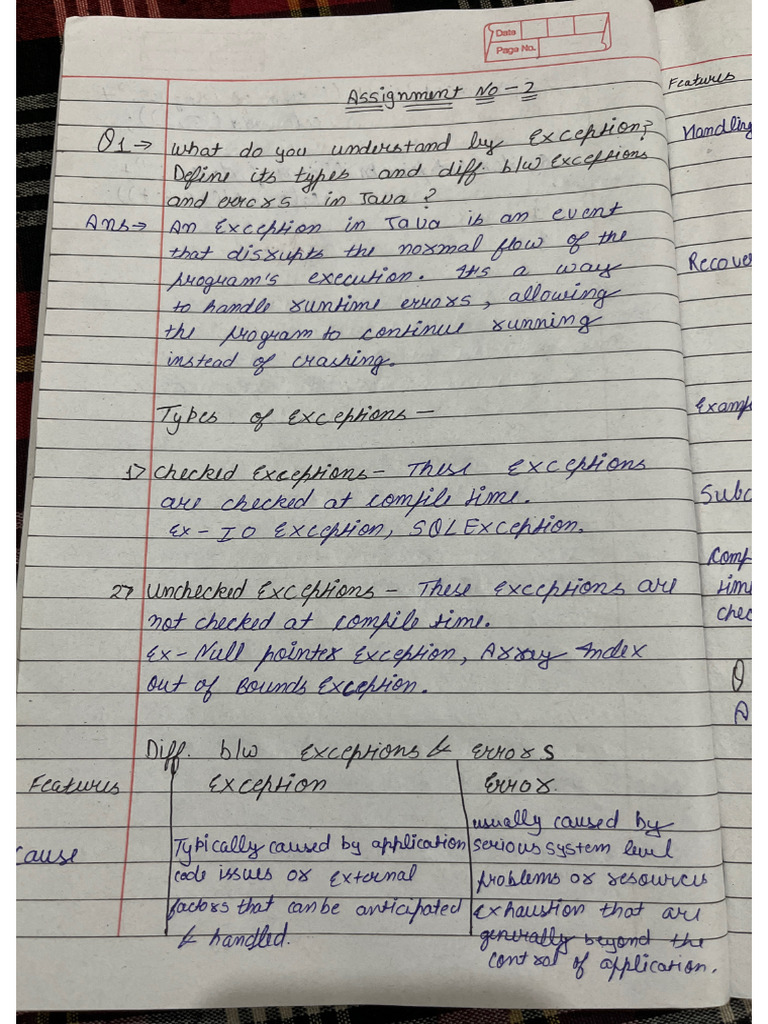 Data
Page No.
Assignment No - 2
Q1→ What do you understand by Exception?
Define its types and diff. b/w exceptions
and errors in Java?
Ans→ An Exception in Java is an event
that disrupts the normal flow of the
program's execution. Its a way
to handle runtime errors, allowing
the program to continue running
instead of crashing.
Types of exceptions —
1> Checked Exceptions - These exceptions
are checked at compile time.
Ex - IO Exception, SQLException.
2> Unchecked Exceptions - These exceptions are
not checked at compile time.
Ex - Null pointer Exception, Array Index
Out of Bounds Exception.
Diff. b/w exceptions & errors
Features Exception Error
Cause
Typically caused by application
code issues or external
factors that can be anticipated
& handled.
usually caused by
serious system level
problems or resources
exhaustion that are
generally beyond the
control of application.
Features
Handling
Recove
Examp
Subc
Comp
time
chec
Q
A